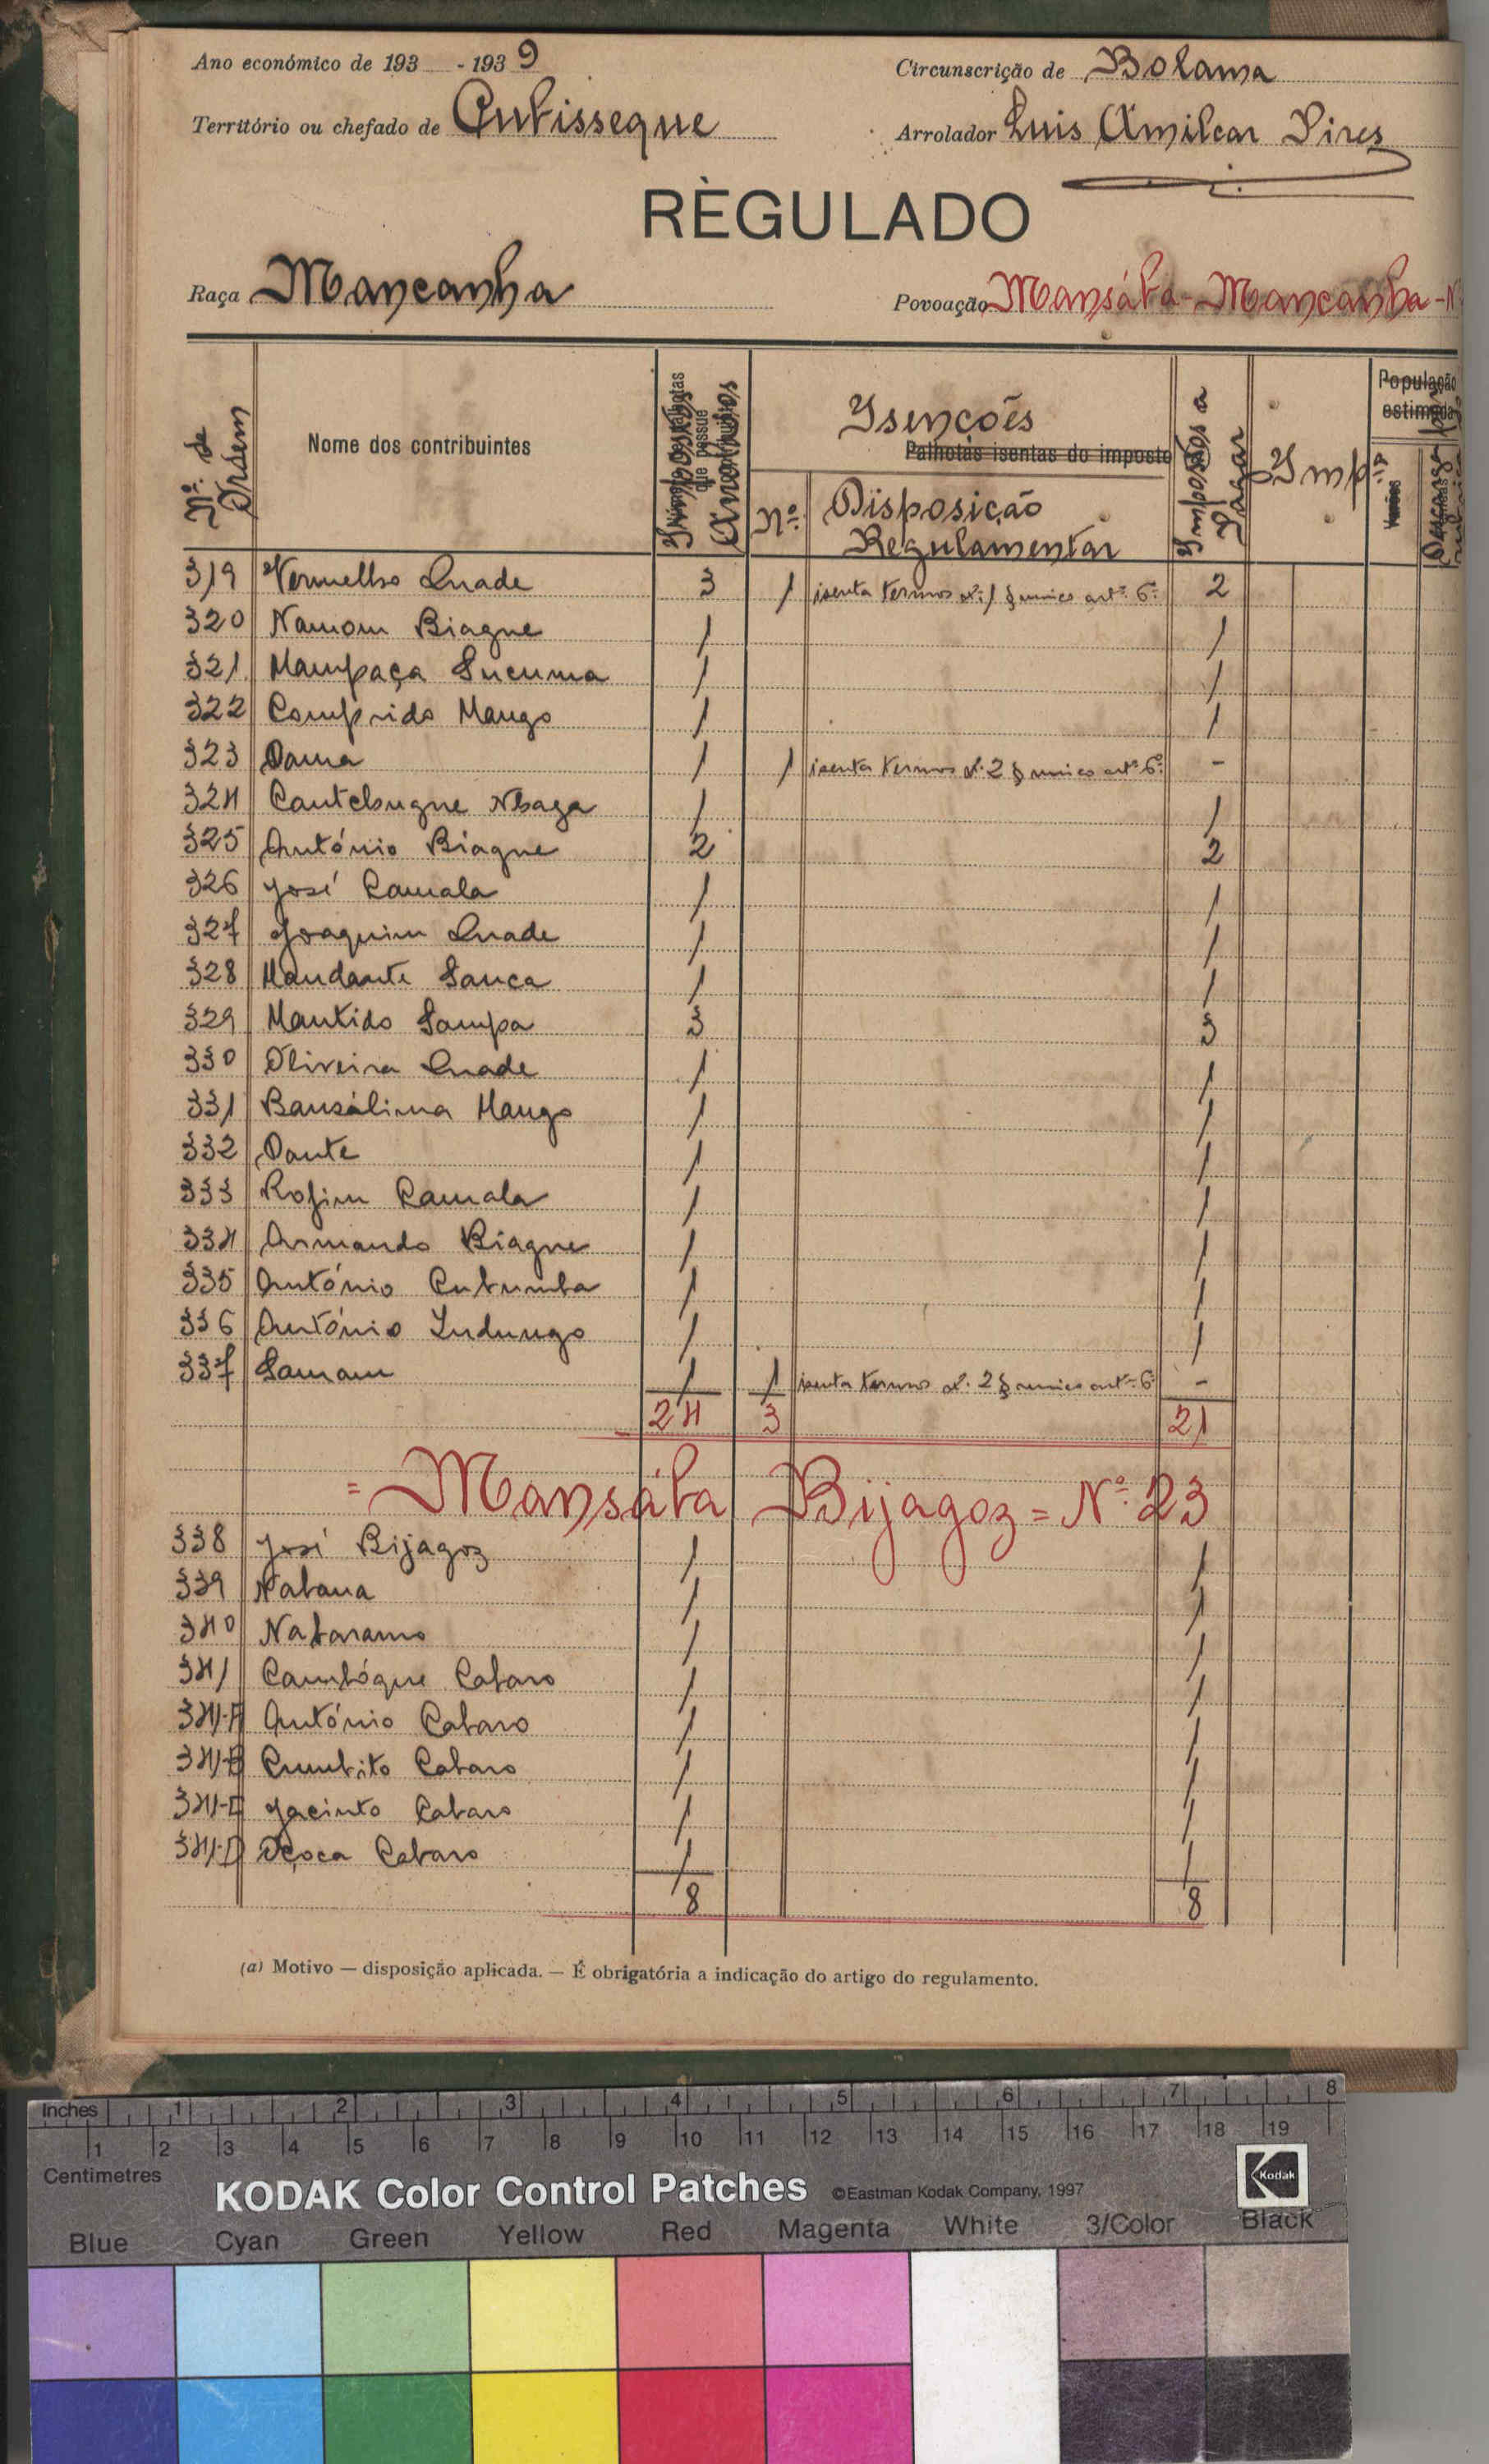 Ano económico de 193 - 1939
Circunscrição de Bolama
Território ou chefado de Cubisseque
Arrolador Luis Amilcar Pires
RÈGULADO
Raça Mancanha
Povoação Mansába - Mancanha - Nº
Nº. de Ordem
Nome dos contribuintes
Impostos Arrolados
Isenções
Palhotas isentas do imposto
Nº.
Disposição Regulamentar
Impostos a Pagar
Imp.
População estimada
319 Vermelho Quade 3 1 isenta termos nº. 1 § unico artº. 6º. 2
320 Namom Biague 1 1
321 Mampaça Sucuma 1 1
322 Comprido Mango 1 1
323 Dama 1 1 isenta termos nº. 2 § unico artº. 6º. -
324 Cantchugue Nbaga 1 1
325 António Biague 2 2
326 José Camala 1 1
327 Joaquim Quade 1 1
328 Mandante Sanca 1 1
329 Mantido Sampa 3 3
330 Oliveira Quade 1 1
331 Bansálima Mango 1 1
332 Dante 1 1
333 Rofim Camala 1 1
334 Armando Biague 1 1
335 António Cubumba 1 1
336 António Indungo 1 1
337 Samam 1 1 isenta termos nº. 2 § unico artº. 6º -
24 3 21
= Mansába Bijagoz = Nº. 23
338 José Bijagoz 1 1
339 Nabana 1 1
340 Nabaramo 1 1
341 Cambóque Cabaro 1 1
341-A António Cabaro 1 1
341-B Cumbito Cabaro 1 1
341-C Jacinto Cabaro 1 1
341-D Cabaro 1 1
8 8
(a) Motivo — disposição aplicada. — É obrigatória a indicação do artigo do regulamento.
Inches 1 2 3 4 5 6 7 8
1 2 3 4 5 6 7 8 9 10 11 12 13 14 15 16 17 18 19
Centimetres
KODAK Color Control Patches ©Eastman Kodak Company, 1997
Kodak
Blue Cyan Green Yellow Red Magenta White 3/Color Black